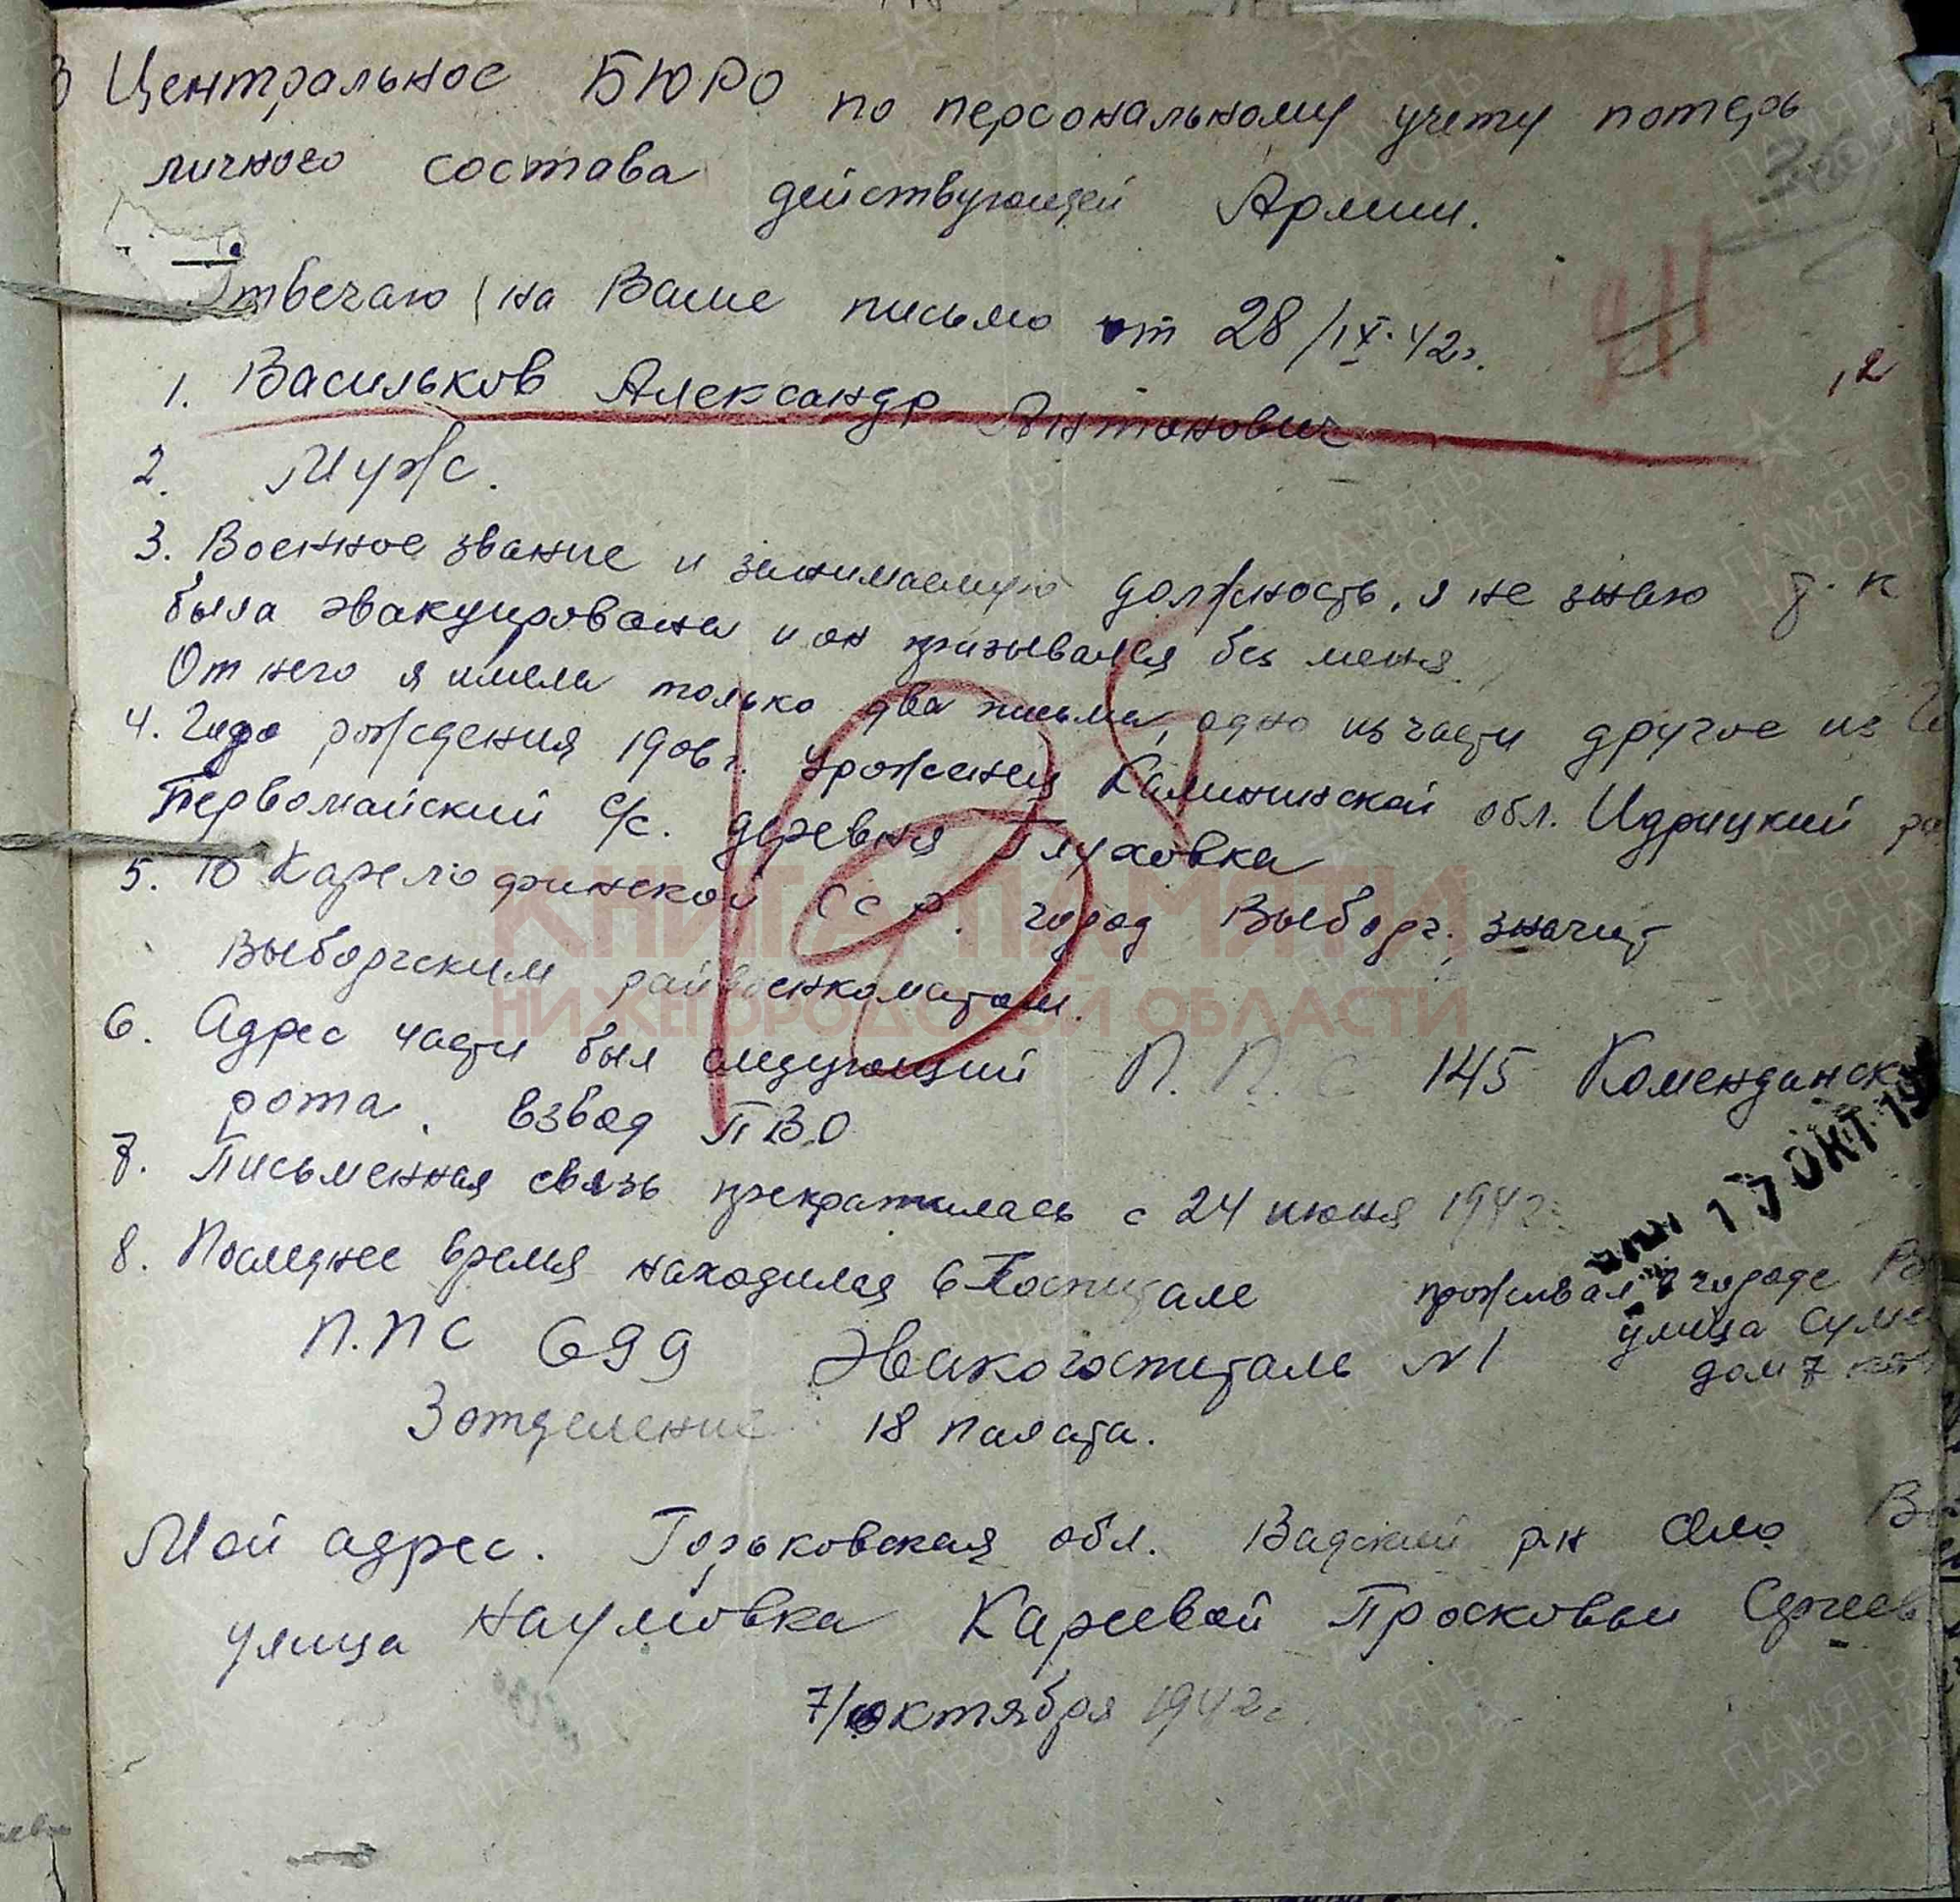 В Центральное БЮРО по персональному учету потерь
личного состава действующей Армии.
Отвечаю на Ваше письмо от 28/IX.42г.
1. Васильков Александр Антонович
2. Муж.
3. Военное звание и занимаемую должность, я не знаю т.к
была эвакуирована и он призывался без меня
От него я имела только два письма, одно из части другое из
4. Года рождения 1906г. Уроженец Калининской обл. Идрицкий
Первомайский с/с. деревня Глуховка
5. Карело финской ССР. город Выборг, значит
Выборгским райвоенкоматом.
6. Адрес части был следующий П.П.С 145 Комендантск
рота. взвод ПВО
7. Письменная связь прекратилась с 24 июня 1942г.
17 ОКТ 19
8. Последнее время находился в Госпитале
П.ПС 699 Эвакогоспиталь №1
3 отделение 18 палата.
проживал в городе
улица
дом 7
Мой адрес. Горьковская обл. Вадский р-н село
улица Наумовка Каревой Просковьи Сергеев
7/октября 1942г.
КНИГА ПАМЯТИ
НИЖЕГОРОДСКОЙ ОБЛАСТИ
ПАМЯТЬ НАРОДА